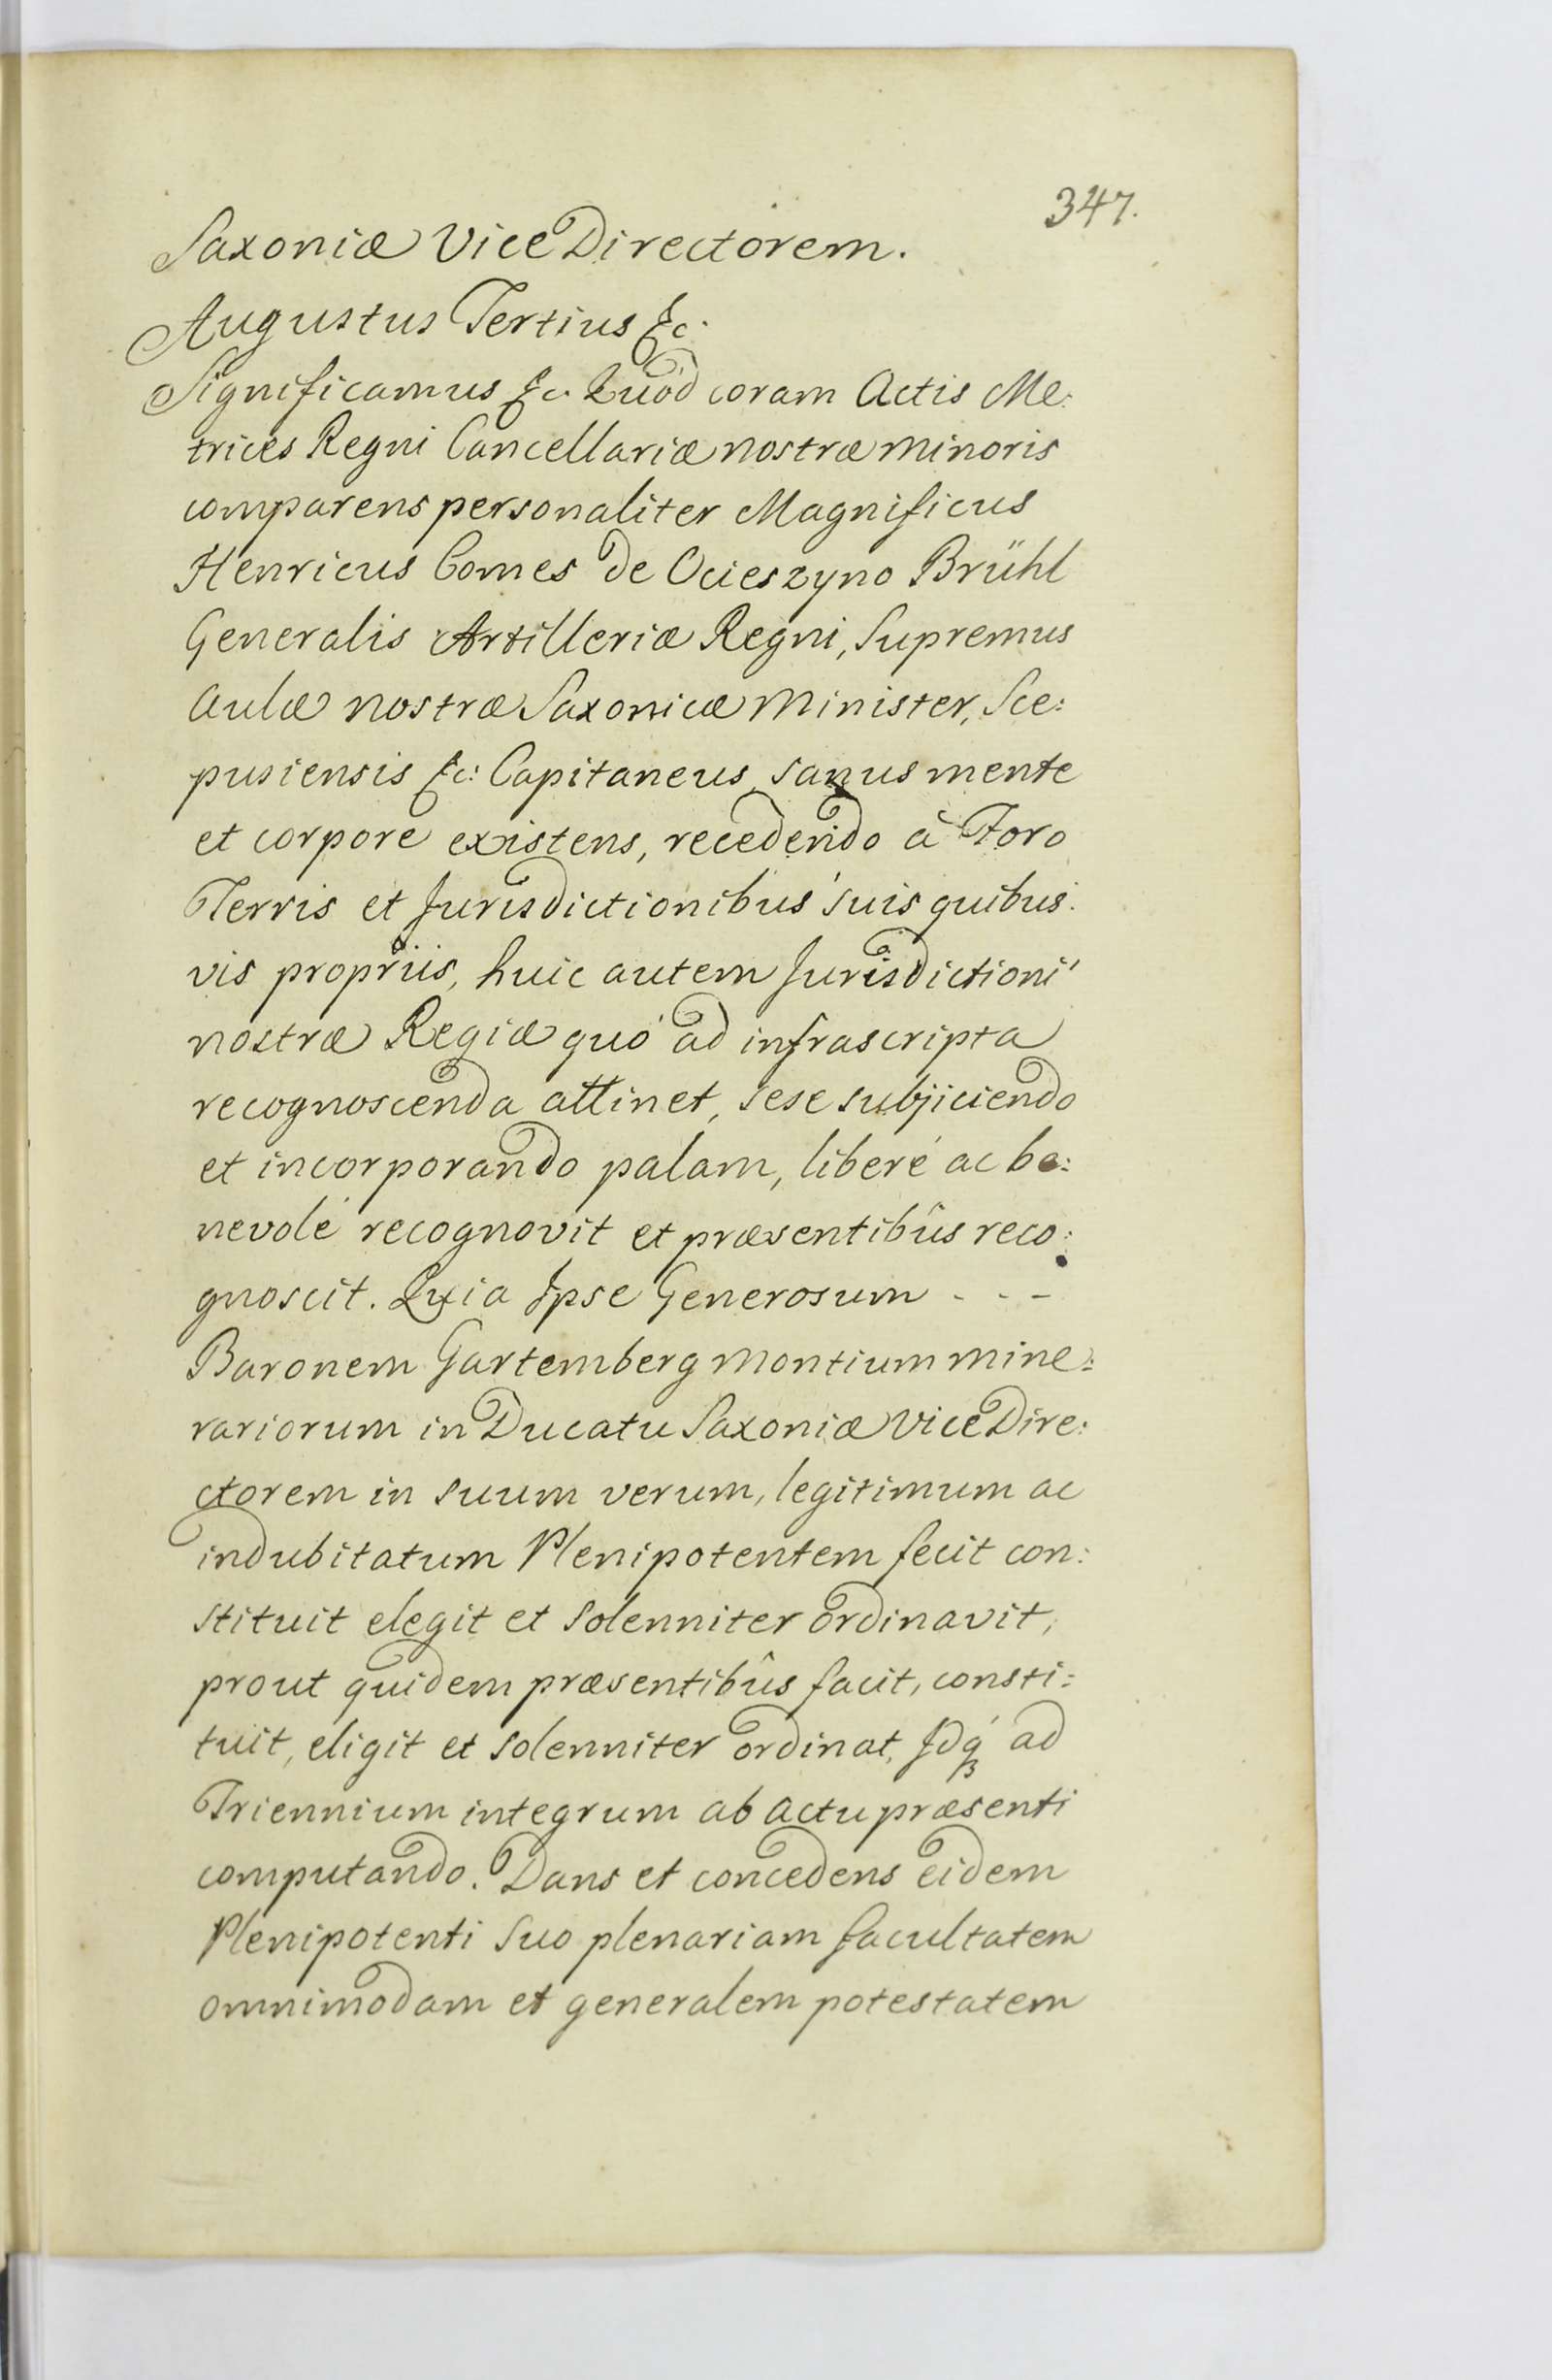 347.
Saxoniæ Vice Directorem.
Augustus Tertius &c.
Significamus &c. Quód coram Actis Me:
trices Regni Cancellariæ nostræ minoris
comparens personaliter Magnificus
Henricus Comes de Ocieszyno Brühl
Generalis Artilleriæ Regni, Supremus
Aulæ nostræ Saxonicæ Minister, Sce:
pusiensis &c: Capitaneus, sanus mente
et corpore existens, recedendo à Foro
Terris et Jurisdictionibus suis quibus:
vis propriis, huic autem Jurisdictioni
nostræ Regiæ quó ad infrascripta
recognoscenda attinet, sese subjiciendo
et incorporando palam, liberé ac be:
nevolé recognovit et præsentibûs reco:
gnoscit. Quia Ipse Generosum - - -
Baronem Gartemberg montium mine:
rariorum in Ducatu Saxoniæ Vice Dire:
ctorem in suum verum, legitimum ac
indubitatum Plenipotentem fecit con:
stituit elegit et solenniter ordinavit,
prout quidem præsentibûs facit, consti:
tuit, eligit et solenniter ordinat, Idq́ꝫ ad
Triennium integrum ab actu præsenti
computando. Dans et concedens eidem
Plenipotenti suo plenariam facultatem
omnimodam et generalem potestatem